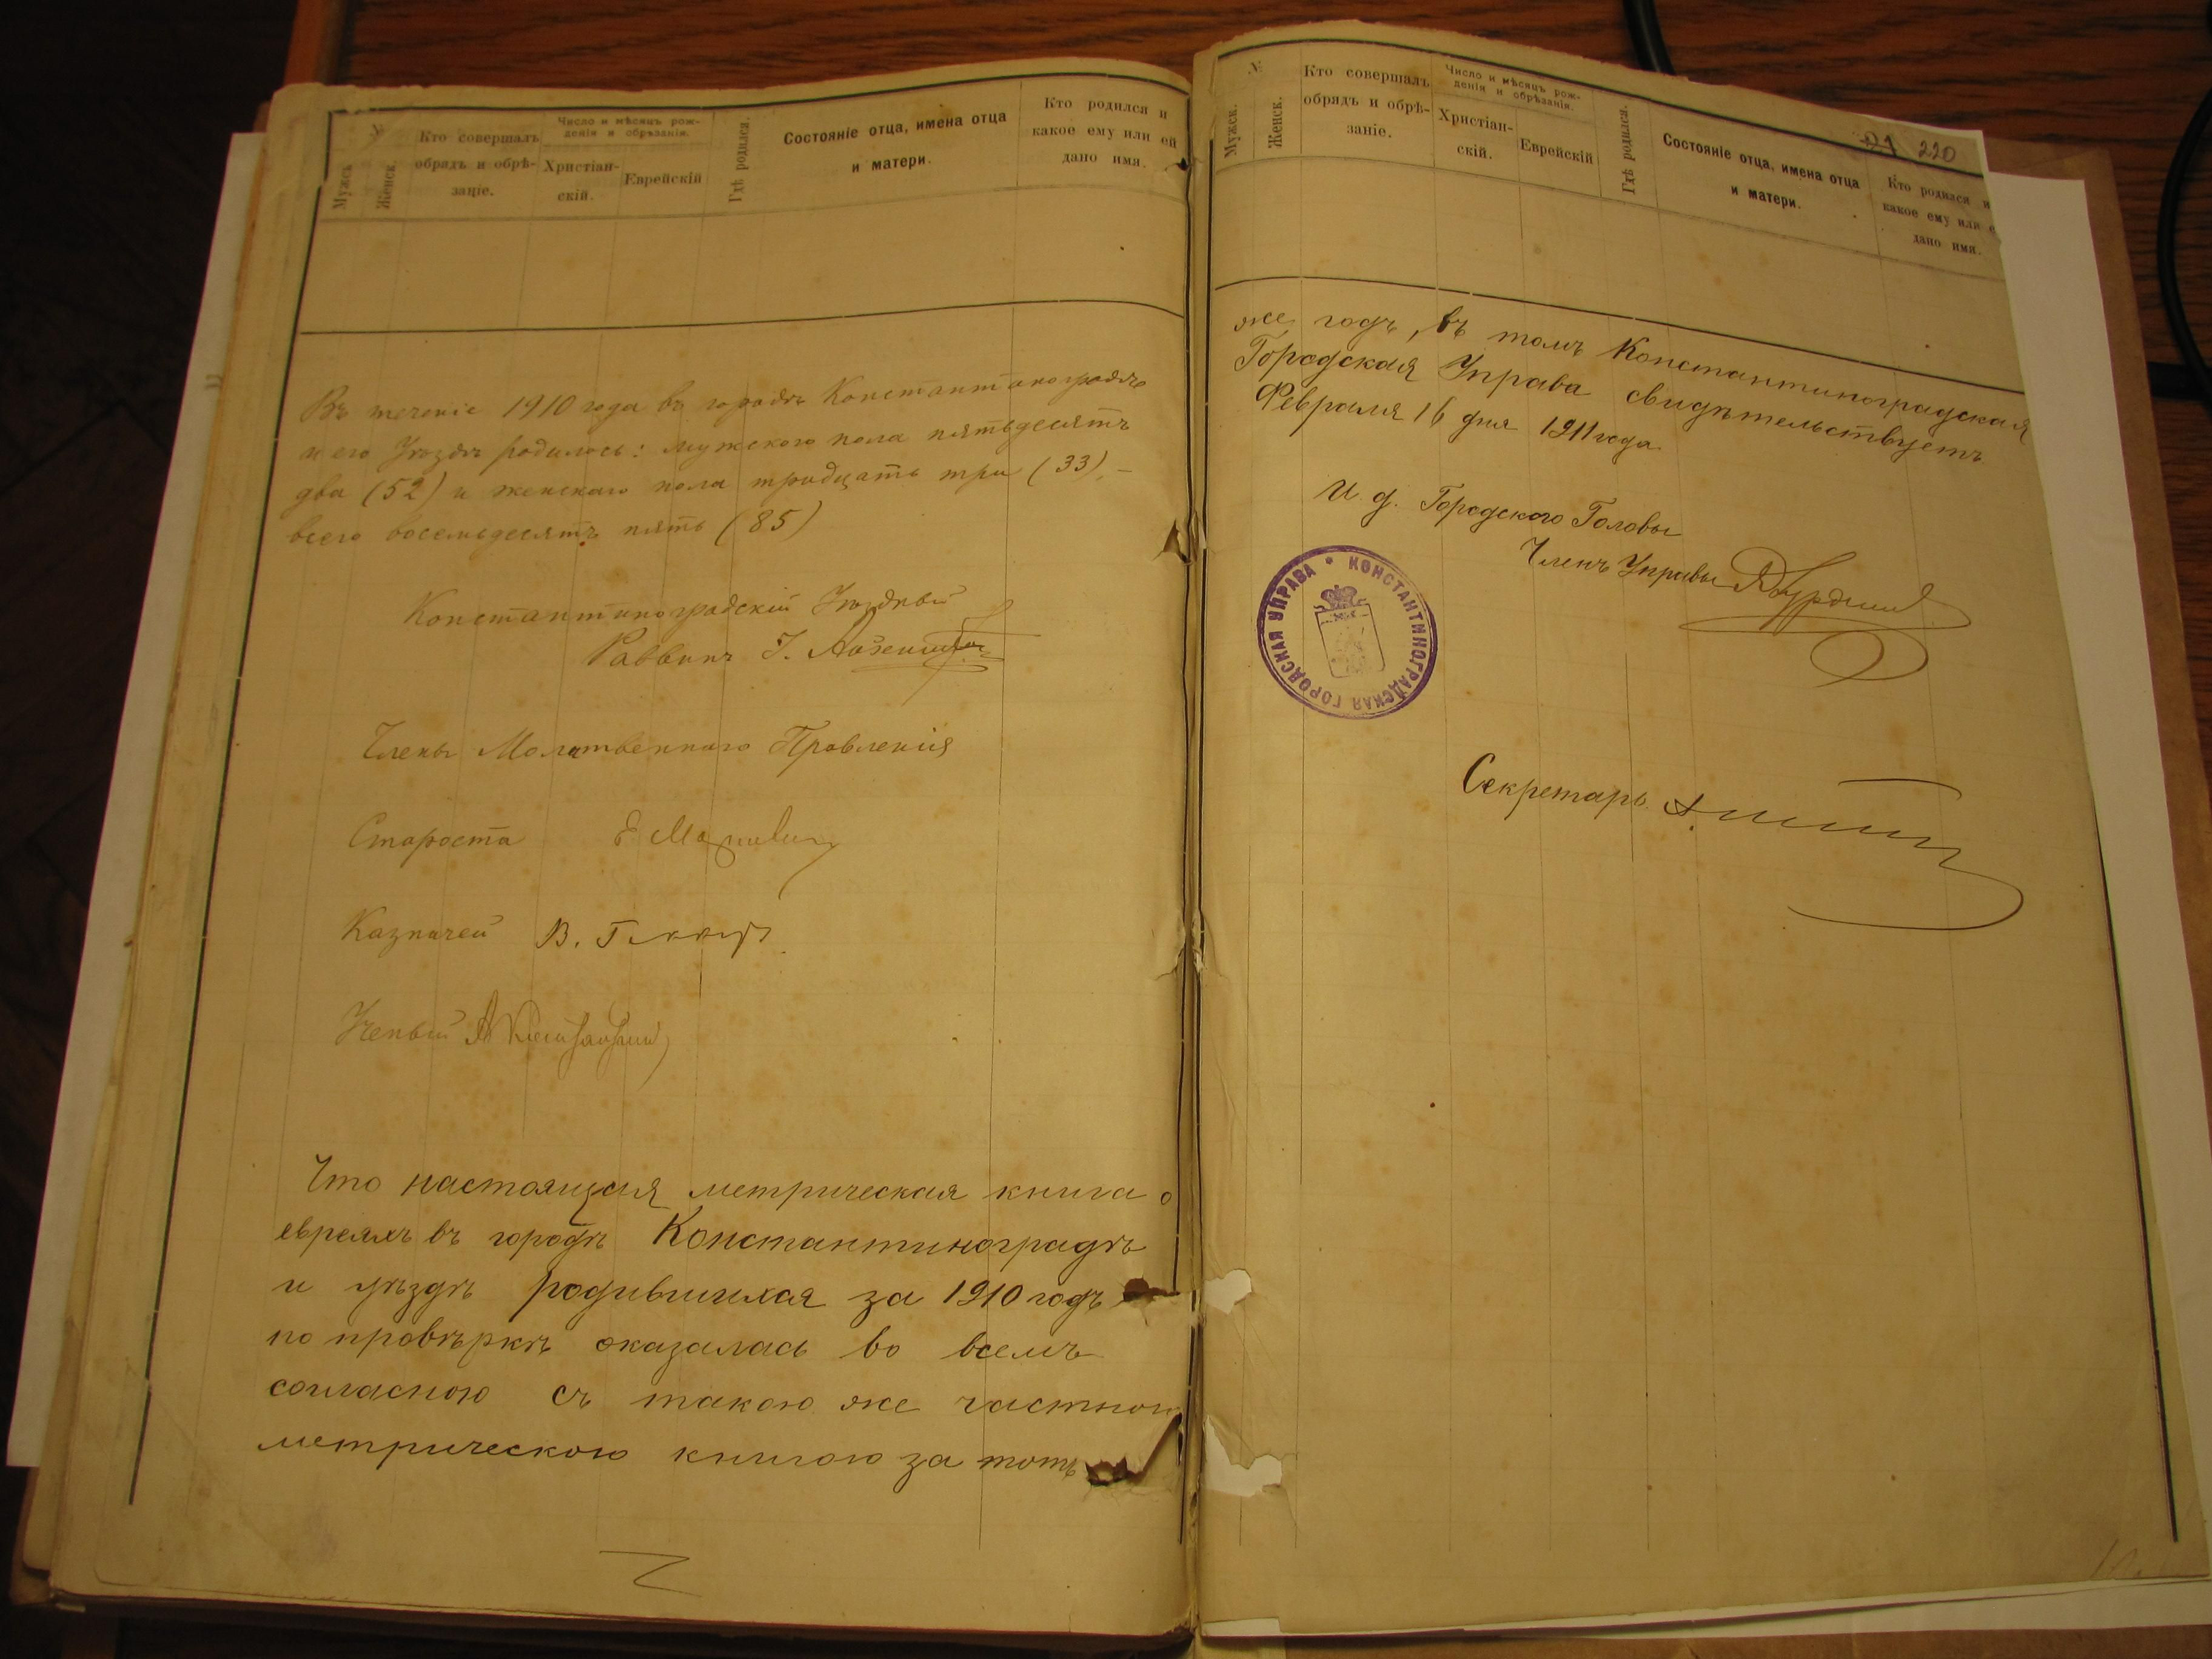 №
Мужск.
Женск.
Кто совершалъ
обрядъ и обрѣ-
заніе.
Число и мѣсяцъ рож-
денія и обрѣзанія.
Христіан-
скій.
Еврейскій
Гдѣ родился.
Состояніе отца, имена отца
и матери.
Кто родился и
какое ему или ей
дано имя.
Въ теченіе 1910 года въ городѣ Константиноградѣ
и его Уѣздѣ родилось: мужского пола пятьдесятъ
два (52) и женскаго пола тридцать три (33) –
всего восемьдесятъ пять (85)
Константиноградскій Уѣздный
Раввинъ
Члены Молитвенного Правленія
Староста
Казначей В.
Ученый
Что настоящая метрическая книга о
евреяхъ въ городѣ Константиноградѣ
и уѣздѣ родившихся за 1910 годъ
по провѣркѣ оказалась во всемъ
согласною съ такою же частною
метрическою книгою за тотъ
№
Мужск.
Женск.
Кто совершалъ
обрядъ и обрѣ-
заніе.
Число и мѣсяцъ рож-
денія и обрѣзанія.
Христіан-
скій.
Еврейскій
Гдѣ родился.
Состояніе отца, имена отца
и матери.
220
Кто родился и
какое ему или е
дано имя.
же годъ, въ томъ Константиноградская
Городская Управа свидѣтельствуетъ
Февраля 16 дня 1911 года
И. д. Городского Головы
Членъ Управы
КОНСТАНТИНОГРАДСКАЯ ГОРОДСКАЯ УПРАВА
Секретарь